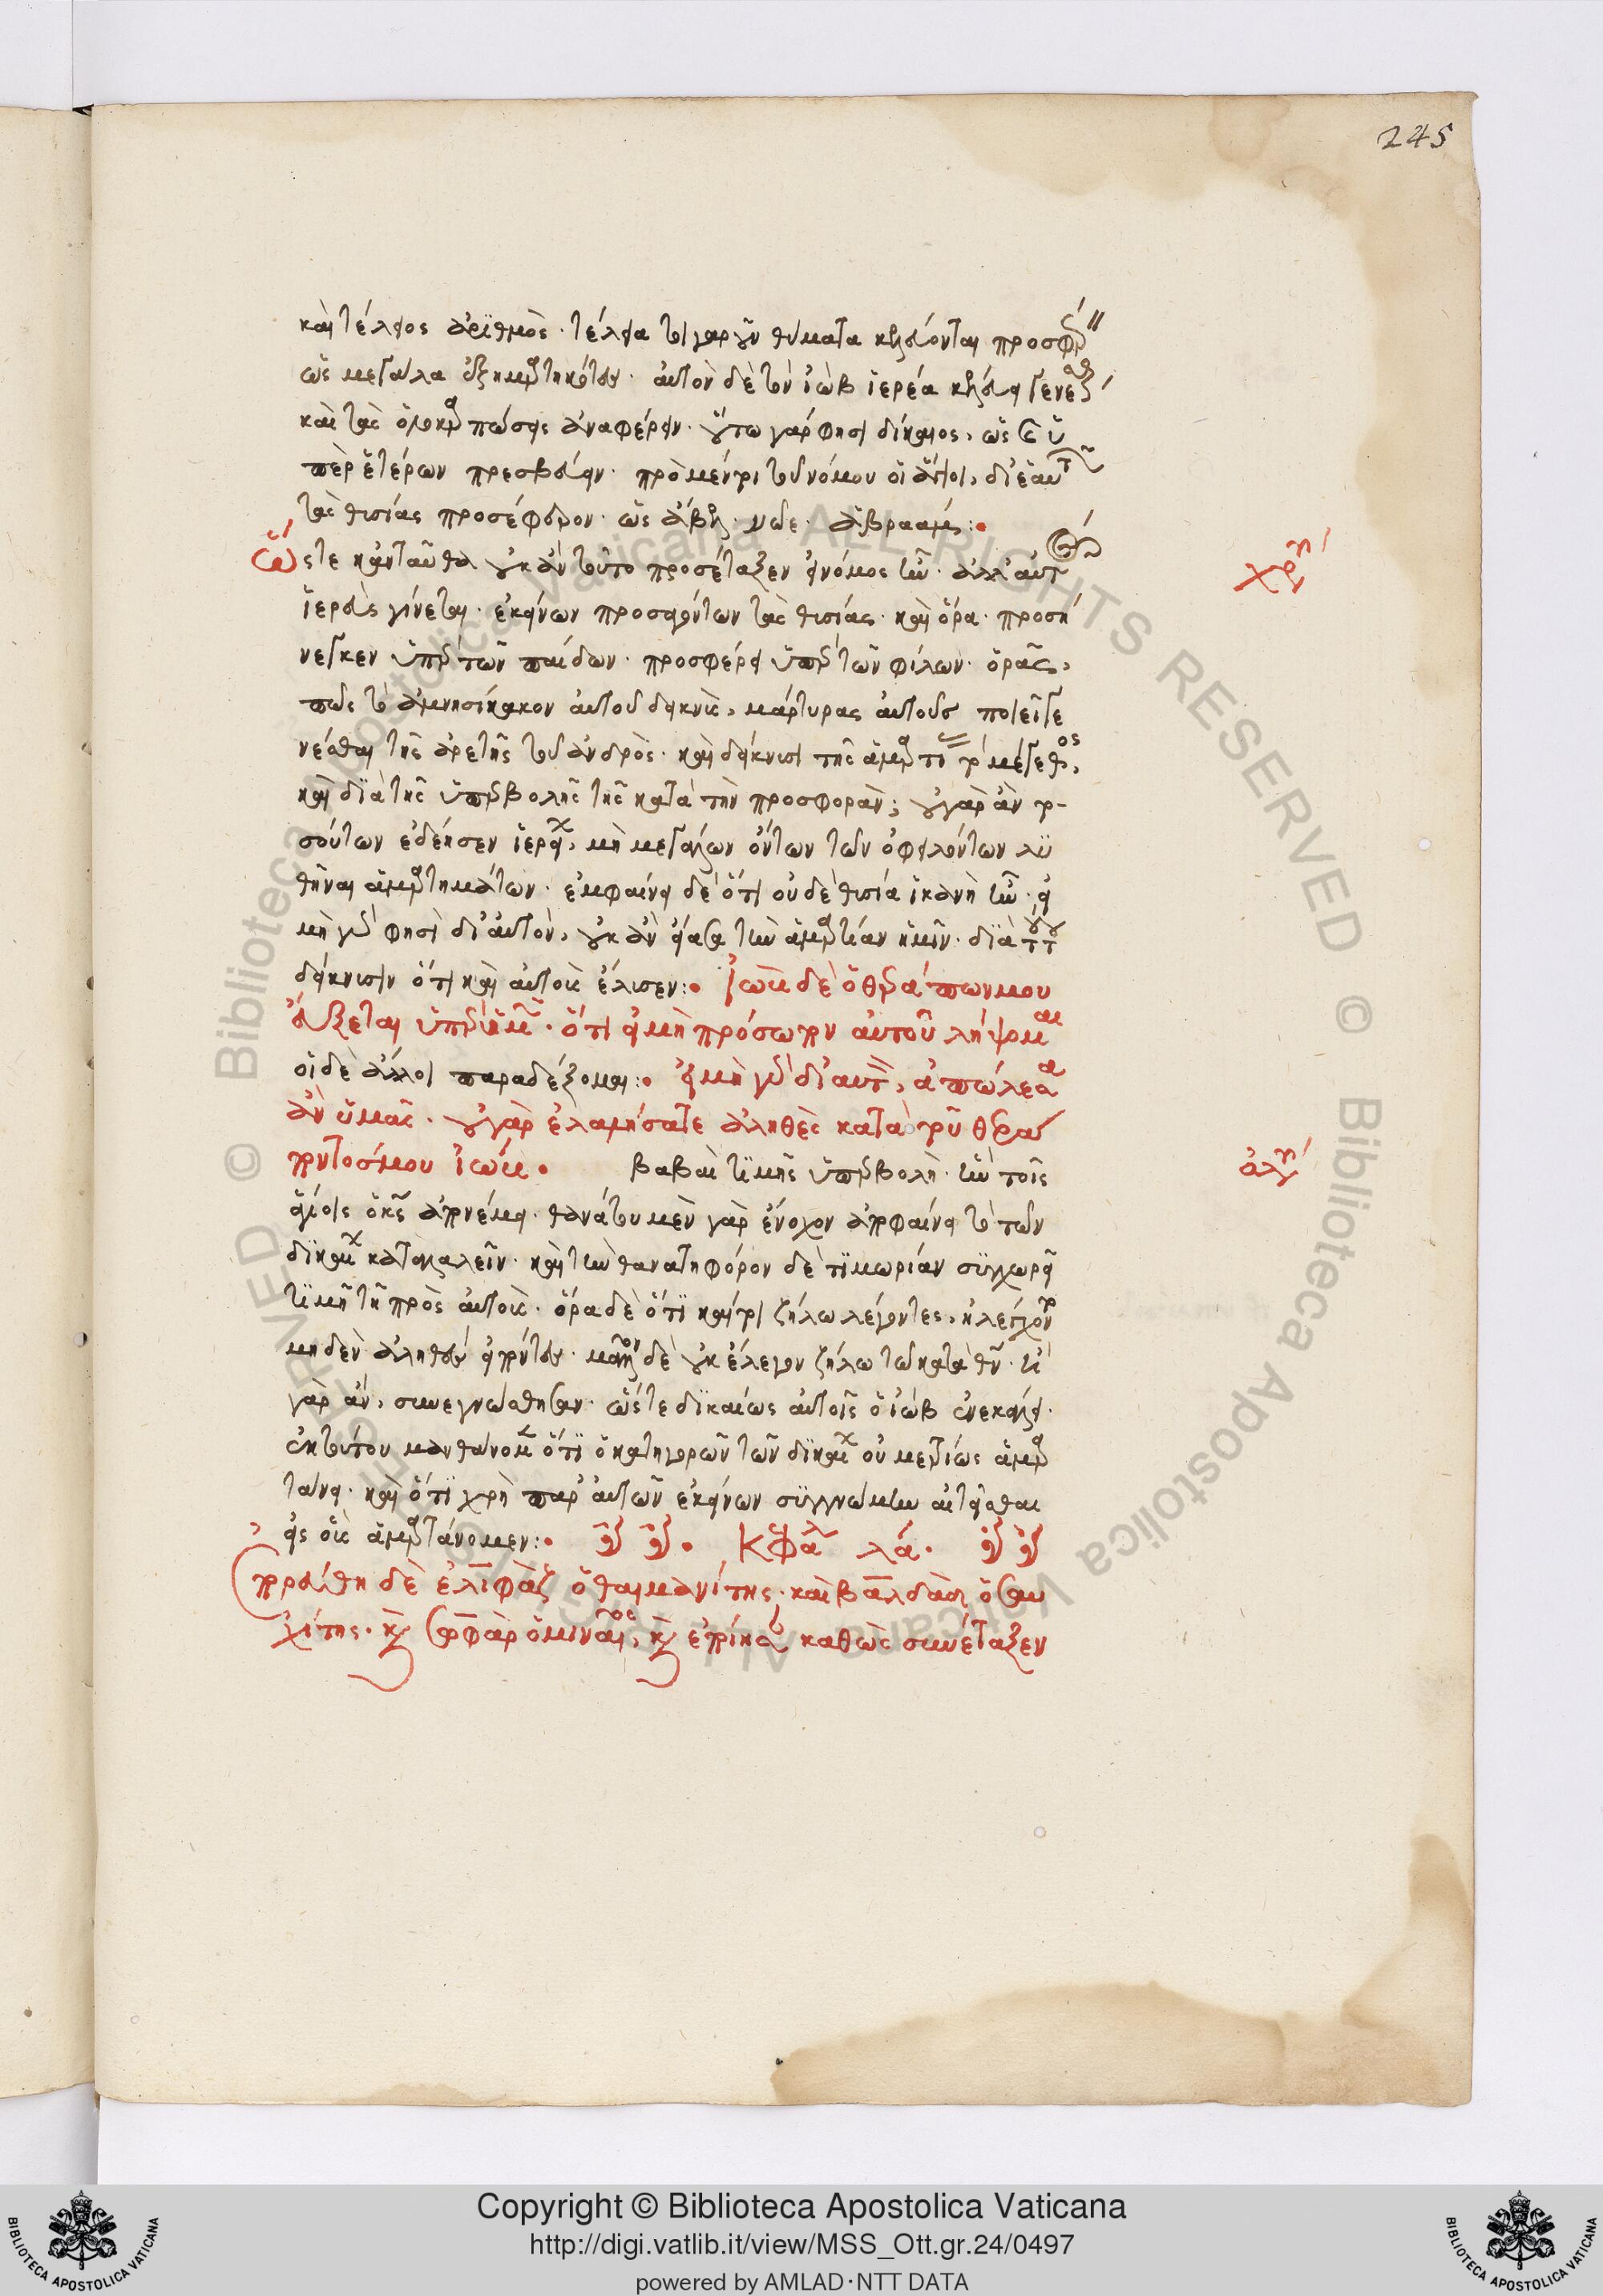 245
καὶ τέλειος ἀριθμός· τέλεια τοιγαροῦν θύματα κελεύονται προσφέρειν
ὡς μεγάλα ἐξημαρτηκότες· αὐτὸν δὲ τὸν ἰὼβ ἱερέα κελεύει γενέσθαι
καὶ τὰς ὁλοκαρπώσεις ἀναφέρειν· οὕτω γάρ φησι δίκαιος, ὡς καὶ ὑ
πὲρ ἑτέρων πρεσβεύειν· πρὸ μέντοι τοῦ νόμου οἱ ἅγιοι, δι' ἑαυτῶν
τὰς θυσίας προσέφερον· ὡς ἄβελ· νῶε· ἀβραάμ:
ὥστε κἀνταῦθα οὐκ ἂν τοῦτο προσέταξεν εἰ νόμος ἦν· ἀλλ' αὐτὸς
χρυ
ἱερεὺς γίνεται· ἐκείνων προσαγόντων τὰς θυσίας· καὶ ὅρα· προσή
νεγκεν ὑπὲρ τῶν παίδων· προσφέρει ὑπὲρ τῶν φίλων· ὁρᾷς,
πῶς τὸ ἀμνησίκακον αὐτοῦ δεικνὺς, μάρτυρας αὐτοὺς ποιεῖ γε
νέσθαι τῆς ἀρετῆς τοῦ ἀνδρός· καὶ δείκνυσι τῆς ἁμαρτίας τὸ μέγεθος,
καὶ διὰ τῆς ὑπερβολῆς τῆς κατὰ τὴν προσφοράν; οὐ γὰρ ἂν το
σούτων ἐδέησεν ἱερείων, μὴ μεγάλων ὄντων τῶν ὀφειλόντων λυ
θῆναι ἁμαρτημάτων· ἐμφαίνει δὲ ὅτι οὐδὲ θυσία ἱκανὴ ἦν· εἰ
μὴ γάρ φησι δι' αὐτὸν, οὐκ ἂν εἴασα τὴν ἁμαρτίαν ὑμῖν· διὰ τούτου
δείκνυσιν ὅτι καὶ αὐτοῖς ἔλυσεν: ἰὼβ δὲ ὁ θεράπων μου
εὔξεται ὑπὲρ ὑμῶν· ὅτι εἰ μὴ πρόσωπον αὐτοῦ λήψομαι
οἱ δὲ ἄλλοι παραδέξομαι: εἰ μὴ γὰρ δι' αὐτὸν, ἀπώλεσα
ἂν ὑμᾶς· οὐ γὰρ ἐλαλήσατε ἀληθὲς κατὰ τοῦ θερά
ποντός μου ἰώβ. βαβαὶ τιμῆς ὑπερβολὴ· ἣν τοῖς
ὀλυ
ἁγίοις ὁ θεὸς ἀπονέμει· θανάτου μὲν γὰρ ἔνοχον ἀποφαίνει τὸ τῶν
δικαίων καταλαλεῖν· καὶ τὴν θανατηφόρον δὲ τιμωρίαν συγχωρεῖ
τιμῇ τῇ πρὸς αὐτούς· ὅρα δὲ ὅτι καίτοι ζήλῳ λέγοντες, ἠλέγχοντο
μηδὲν ἀληθὲς εἰπόντες· μᾶλλον δὲ οὐκ ἔλεγον ζήλῳ τῷ κατὰ θεόν· ἦ
γὰρ ἂν, συνεγνώσθησαν· ὥστε δικαίως αὐτοῖς ὁ ἰὼβ ἐνεκάλει·
ἐκ τούτου μανθάνομεν ὅτι ὁ κατηγορῶν τῶν δικαίων οὐ μετρίως ἁμαρ
τάνει· καὶ ὅτι χρὴ παρ' αὐτῶν ἐκείνων συγγνώμην αἰτεῖσθαι
εἰς οὓς ἁμαρτάνομεν: Κεφάλ λα.
ἐπορεύθη δὲ ἐλιφὰζ ὁ θαιμανίτης· καὶ βαλδὰδ ὁ σαυ
χίτης· καὶ σωφὰρ ὁ μιναῖος, καὶ ἐποίησαν καθὼς συνέταξεν
Copyright © Biblioteca Apostolica Vaticana
http://digi.vatlib.it/view/MSS_Ott.gr.24/0497
powered by AMLAD·NTT DATA
BIBLIOTECA APOSTOLICA VATICANA
BIBLIOTECA APOSTOLICA VATICANA
© Biblioteca Apostolica Vaticana ALL RIGHTS RESERVED © Biblioteca Apostolica Vaticana ALL RIGHTS RESERVED